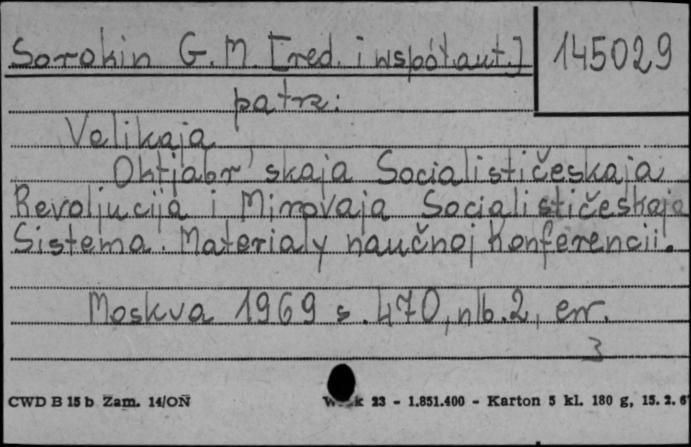 Sorokin G. M. [red. i współaut.] 145029
patrz:
Velikaja
Oktjabr'skaja Socialističeskaja
Revoljucija i Mirovaja Socialističeskaja
Sistema. Materialy naučnoj Konferencii.
Moskva 1969 s. 470, nlb. 2, err.
3
CWD B 15 b Zam. 14/ON 23 - 1.851.400 - Karton 5 kl. 180 g, 15. 2. 6